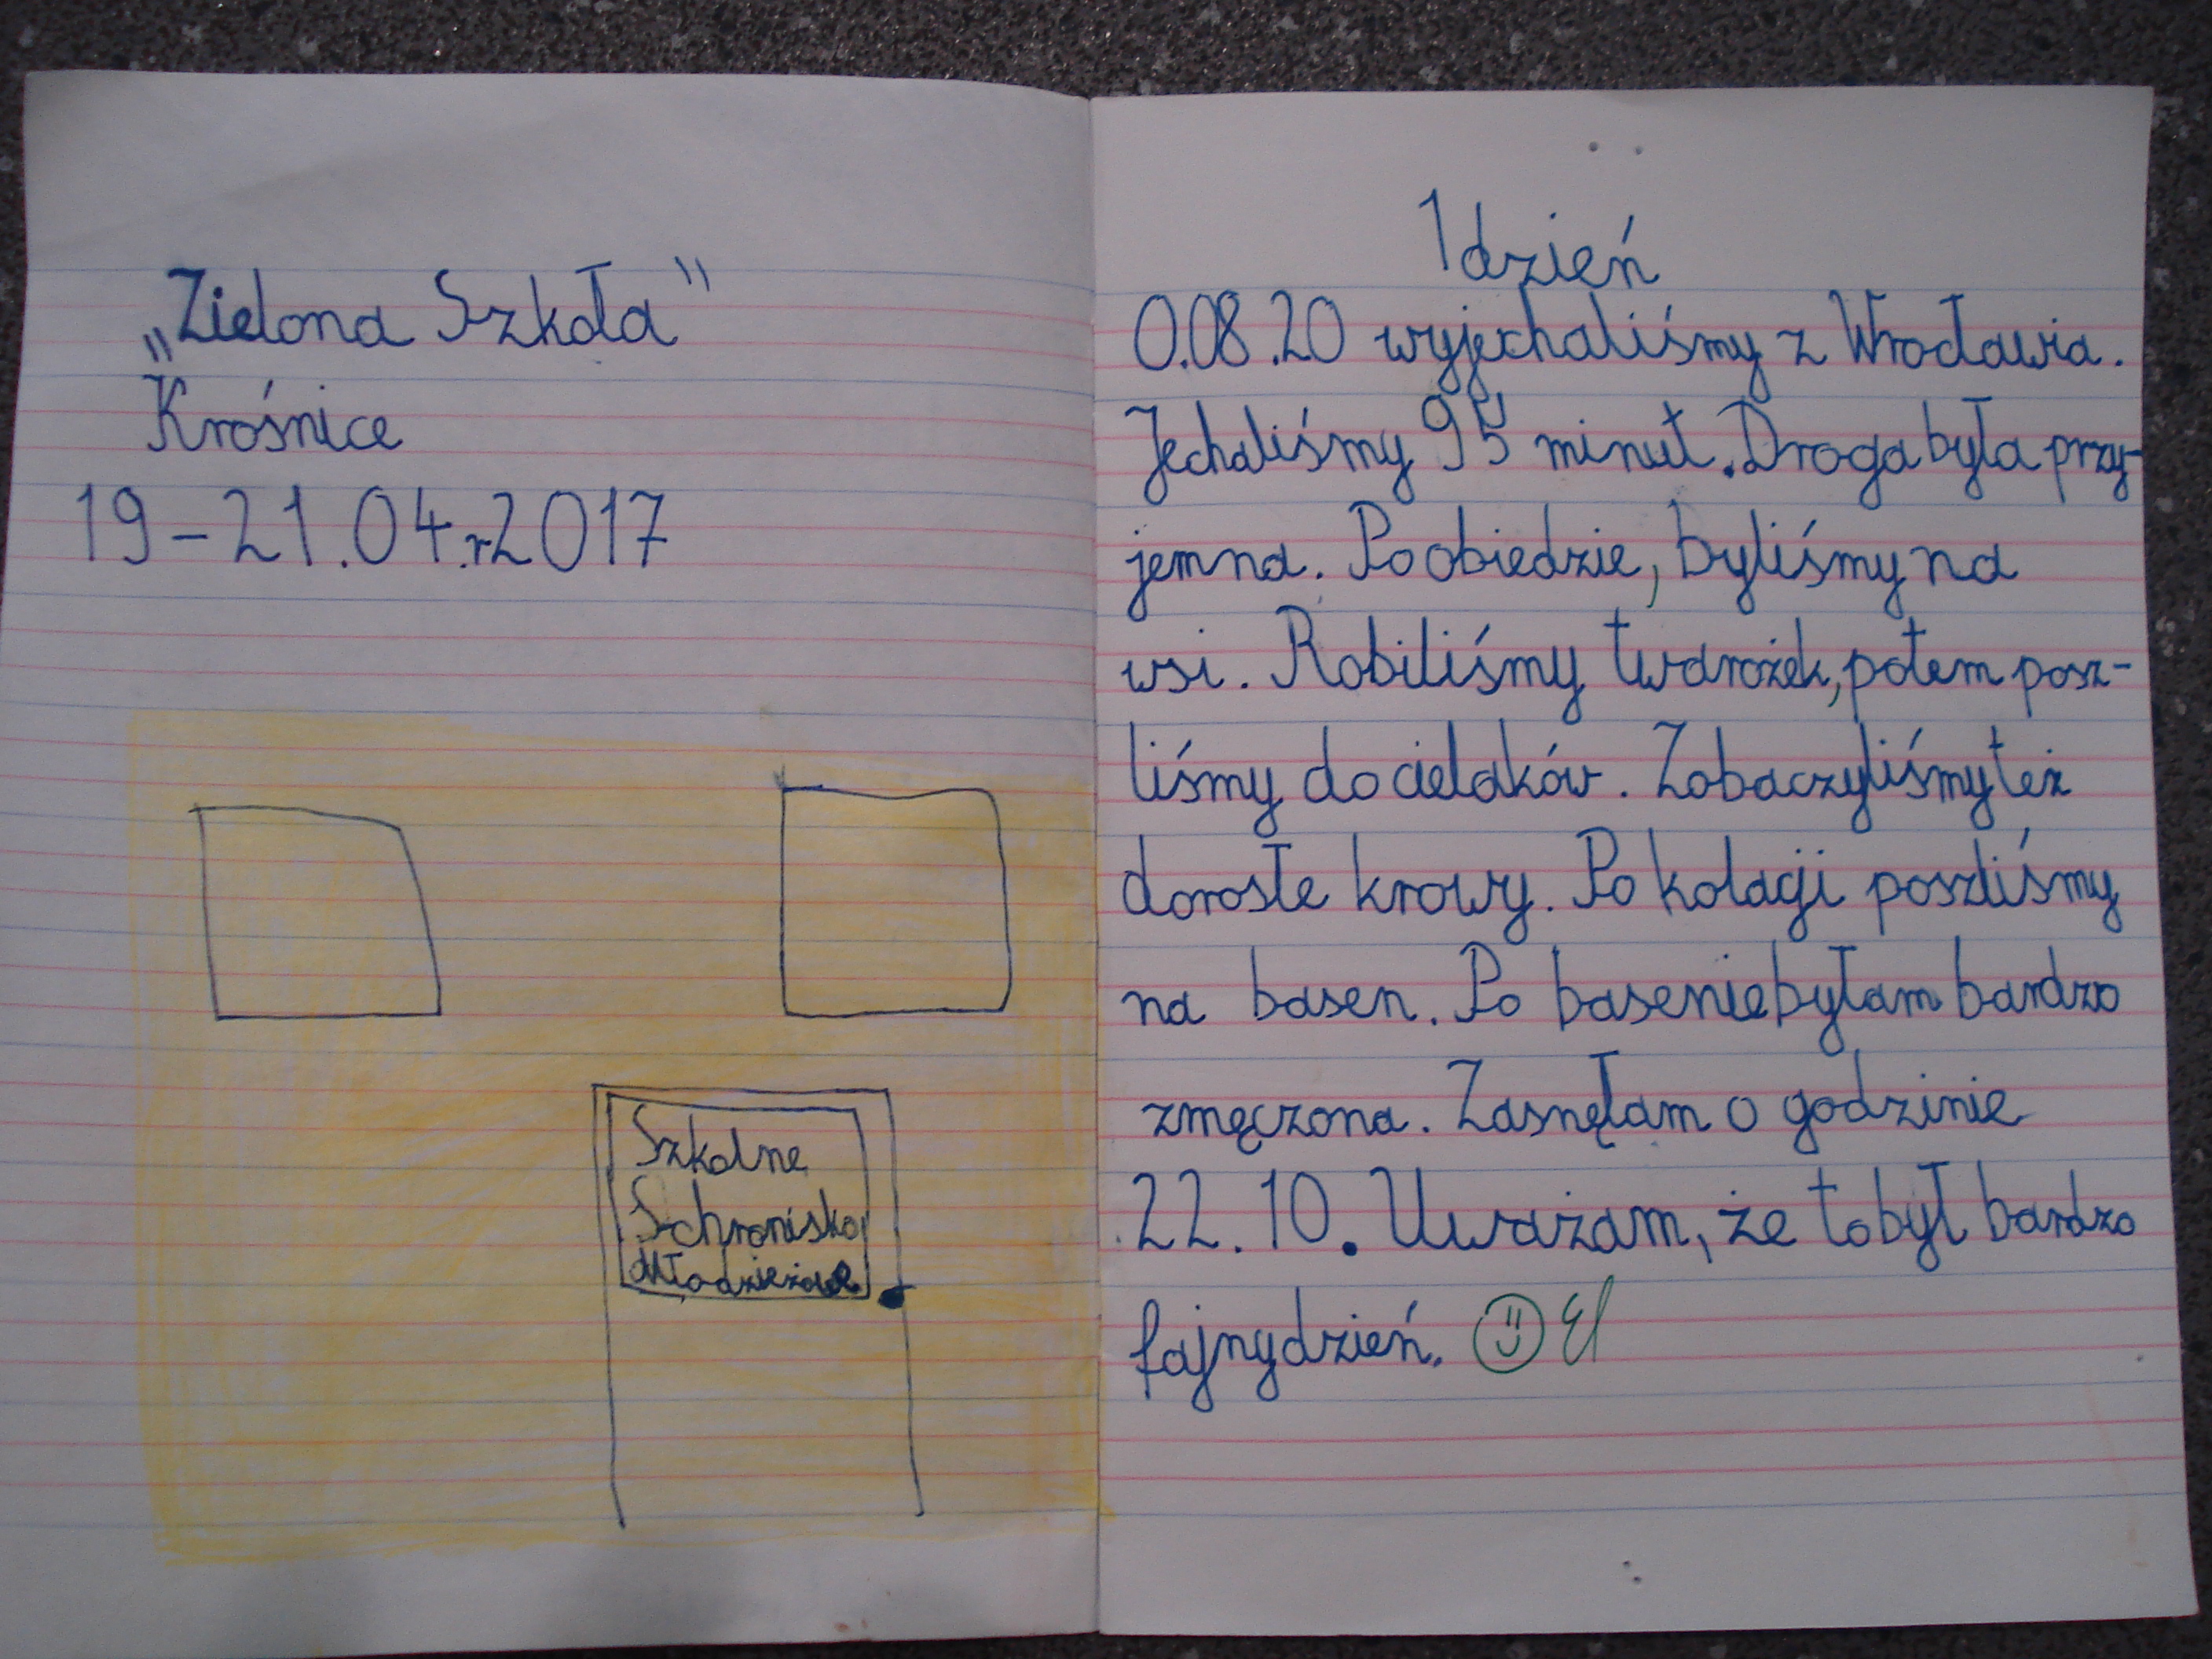 „Zielona Szkoła"
Krośnice
19-21.04.r2017
Szkolne
Schronisko
Młodzieżowe
1 dzień
O.08.20 wyjechaliśmy z Wrocławia.
Jechaliśmy 95 minut. Droga była przy-
jemna. Po obiedzie, byliśmy na
wsi. Robiliśmy twarożek, potem posz-
liśmy do cielaków. Zobaczyliśmy też
dorosłe krowy. Po kolacji poszliśmy
na basen. Po basenie byłam bardzo
zmęczona. Zasnęłam o godzinie
22.10. Uważam, że to był bardzo
fajny dzień.